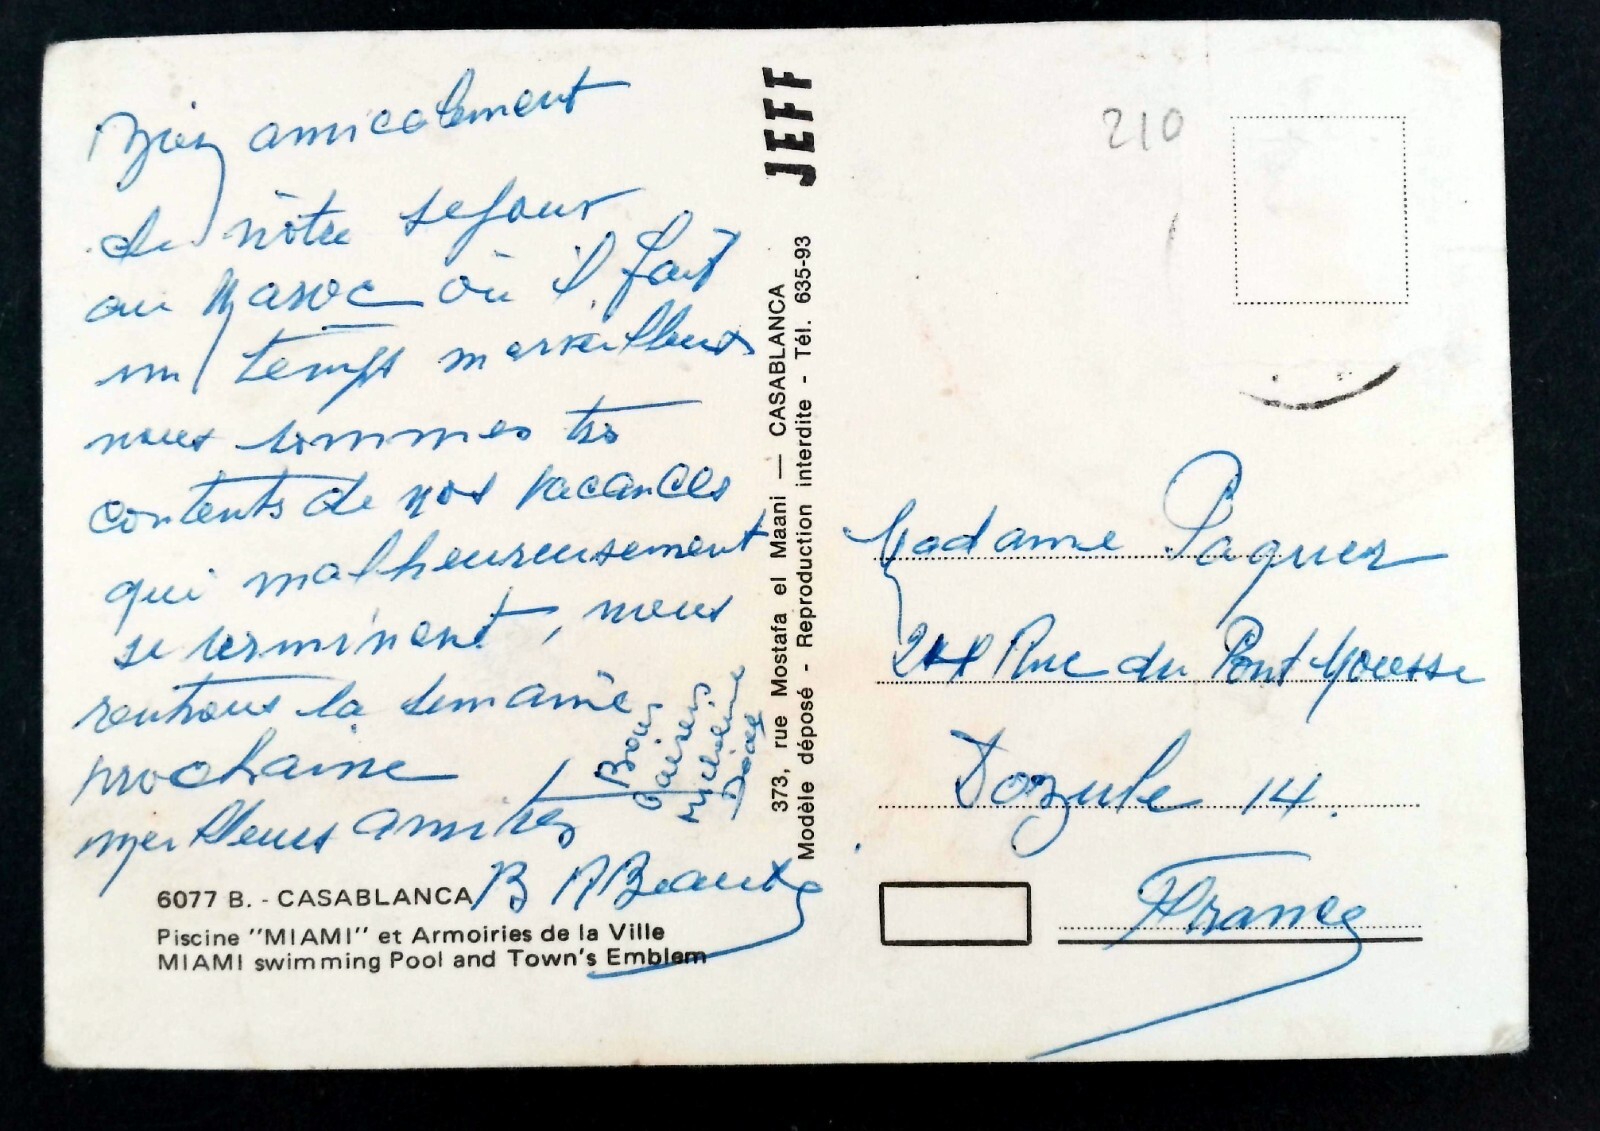 Bien amicalement
de nôtre séjour
au Maroc où il fait
un temps merveilleux
nous sommes très
contents de nos vacances
qui malheureusement
se terminent, nous
rentrons la semaine
prochaine
meilleurs amitiés
Bons
Baisers
Micheline
B R Beaux
6077 B. - CASABLANCA
Piscine "MIAMI" et Armoiries de la Ville
MIAMI swimming Pool and Town's Emblem
JEFF
373, rue Mostafa el Maani — CASABLANCA
Modèle déposé - Reproduction interdite - Tél. 635-93
210
Madame Paquez
Rue du Pont Mousse
Dozule 14.
France